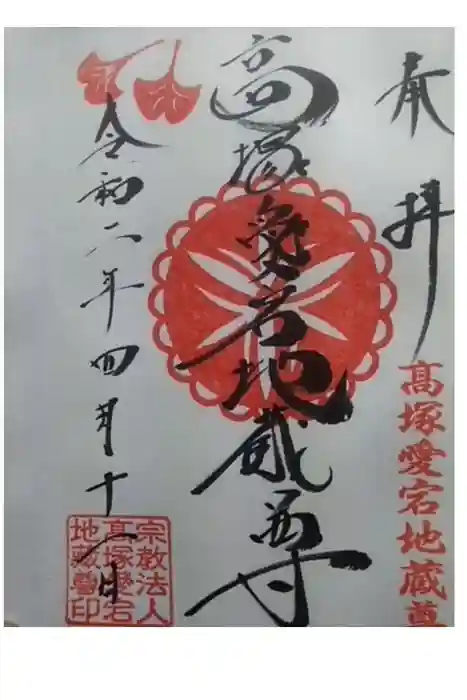 奉拝
髙塚愛宕地蔵尊
高塚愛宕地蔵尊
令和二年四月十一日
宗教法人
髙塚愛宕
地蔵尊印